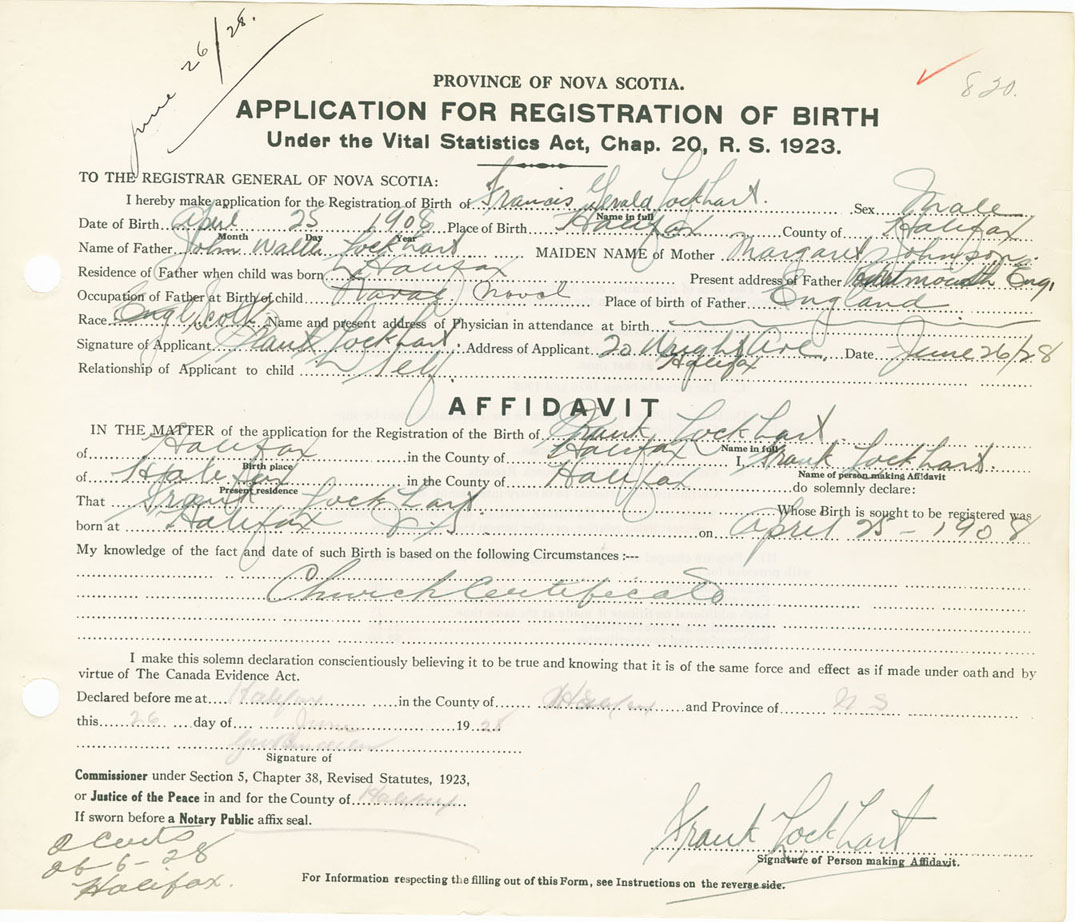 June 26/28.
820.
PROVINCE OF NOVA SCOTIA.
APPLICATION FOR REGISTRATION OF BIRTH
Under the Vital Statistics Act, Chap. 20, R. S. 1923.
TO THE REGISTRAR GENERAL OF NOVA SCOTIA:
I hereby make application for the Registration of Birth of Francis Gerald Lockhart. Sex Male
Name in full
Date of Birth April 25 1908 Place of Birth Halifax County of Halifax
Month Day Year
Name of Father John Walter Lockhart MAIDEN NAME of Mother Margaret Johnson.
Residence of Father when child was born Halifax Present address of Father Eng.
Occupation of Father at Birth of child Naval Place of birth of Father England
Race Engl Scotch Name and present address of Physician in attendance at birth
Signature of Applicant Frank Lockhart. Address of Applicant 20 Wright Ave Date June 26/28
Halifax
Relationship of Applicant to child Self.
AFFIDAVIT
IN THE MATTER of the application for the Registration of the Birth of Frank Lockhart.
Name in full
of Halifax in the County of Halifax I, Frank Lockhart.
Birth place Name of person making Affidavit
of Halifax in the County of Halifax do solemnly declare:
Present residence
That Frank Lockhart. Whose Birth is sought to be registered was
born at Halifax N.S. on April 25 - 1908
My knowledge of the fact and date of such Birth is based on the following Circumstances :---
Church Certificate
I make this solemn declaration conscientiously believing it to be true and knowing that it is of the same force and effect as if made under oath and by
virtue of The Canada Evidence Act.
Declared before me at Halifax in the County of Halifax and Province of N S
this 26 day of June 1928
Signature of
Commissioner under Section 5, Chapter 38, Revised Statutes, 1923,
or Justice of the Peace in and for the County of Halifax
If sworn before a Notary Public affix seal.
Frank Lockhart
Signature of Person making Affidavit.
6-28
Halifax.
For Information respecting the filling out of this Form, see Instructions on the reverse side.